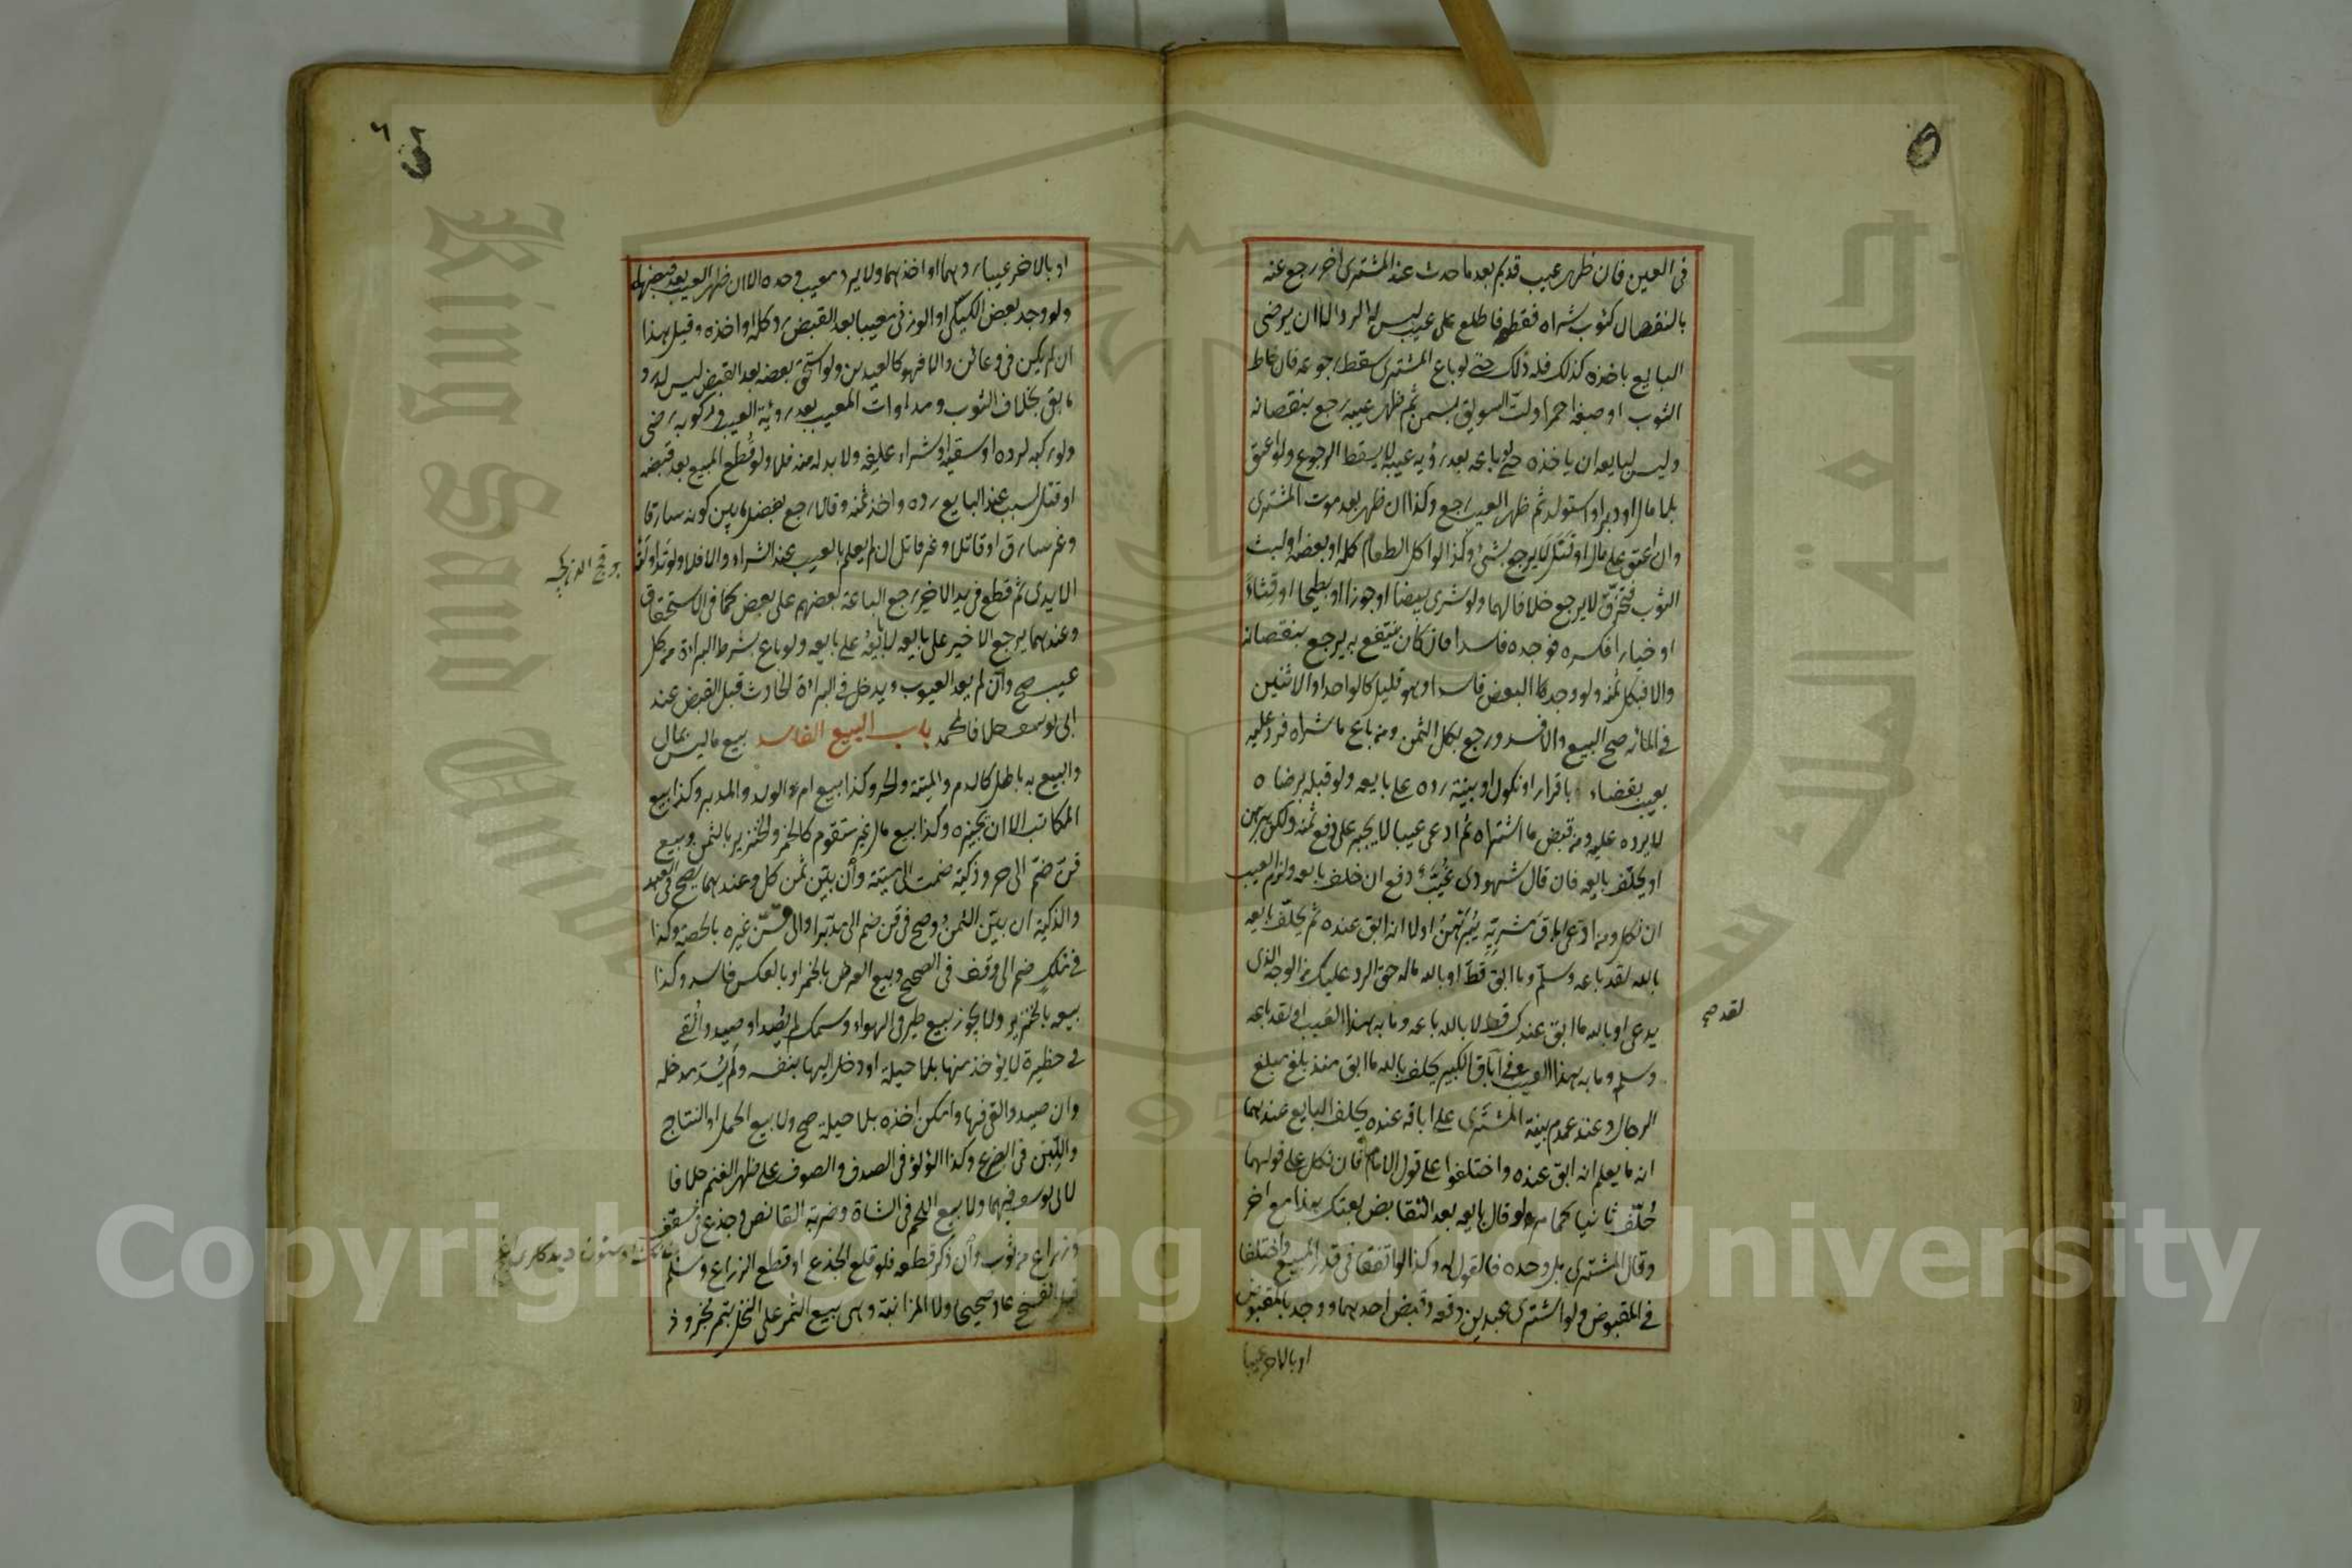 في العين فان ظهر عيب قديم بعد ما حدث عند المشترى اخر رجع عنه
بالنقصان كثوب شراه فقطعه فاطلع على عيب ليس له الرد الا ان يرضى
البايع باخذه كذلك فله ذلك حتى لو باع المشترى سقط رجوعه فان خاط
الثوب او صبغه احمر او لت السويق بسمن ثم ظهر عيبه رجع بنقصانه
وليس لبايعه ان ياخذه حتى لو باعه بعد رؤية عيبه لا يسقط الرجوع ولو اعتق
بلا مال او دبر او استولد ثم ظهر العيب رجع وكذا ان ظهر بعد موت المشترى
وان اعتق على مال او قتل لا يرجع بشئ وكذا لو اكل الطعام كله او بعضه او لبث
الثوب فتخرق لا يرجع خلافا لهما ولو شرى بيضا او جوزا او بطيخا او قثاء
او خيارا فكسره فوجده فاسدا فان كان ينتفع به يرجع بنقصانه
والا فبكل ثمنه ولو وجد البعض فاسدا وهو قليل كالواحد او الاثنين
في المائه صح البيع والا فسد ورجع بكل الثمن ومن باع ما شراه فرد عليه
بعيب بقضاء باقرار او نكول او بينة رده على بايعه ولو قبله برضاه
لا يرده عليه ومن قبض ما اشتراه ثم ادعى عيبا لا يجبر على دفع ثمنه ولكن يبرهن
او يحلف بايعه فان قال شهودى غيب دفع ان حلف بايعه ولزم العيب
ان نكل ومن ادعى اباق مشريه يبرهن اولا انه ابق عنده ثم يحلف بايعه
بالله لقد باعه وسلم وما ابق قط او بالله ماله حق الرد عليك من الوجه الذى
يدعى او بالله ما ابق عندك قط لا بالله باعه وما به هذا العيب او لقد باعه
لقد صح
وسلم وما به هذا العيب وفي اباق الكبير يحلف بالله ما ابق منذ بلغ مبلغ
الرجال وعند عدم بينة المشترى على اباقه عنده يحلف البايع عندهما
انه ما يعلم انه ابق عنده واختلفوا على قول الامام فان نكل على قولهما
حلف ثانيا كما مر ولو قال بايعه بعد التقابض بعتك هذا مع اخر
وقال المشترى بل وحده فالقول له وكذا لو اتفقا في قدر المبيع واختلفا
في المقبوض ولو اشترى عبدين دفعه وقبض احدهما ووجد بالمقبوض
او بالاخر عيبا
او بالاخر عيبا ردهما او اخذهما ولا يرد معيب وحده الا ان ظهر العيب بعد قبضهما
ولو وجد بعض الكيلى او الوزنى معيبا بعد القبض رد كله او اخذه وقيل هذا
ان لم يكن في وعائين والا فهو كالعبدين ولو استحق بعضه بعد القبض ليس له رد
ما بقى بخلاف الثوب ومداوات المعيب بعد رؤية العيب وركوبه رضى
ولو ركبه لرده او سقيه او شراء علفه ولا بد له منه فلا ولو قطع المبيع بعد قبضه
او قتل لسبب عند البايع رده واخذ ثمنه وقالا رجع بفضل ما بين كونه سارقا
وغير سارق او قاتلا وغير قاتل ان لم يعلم بالعيب عند الشراء والا فلا ولو تداولته
الايدى ثم قطع في يد الاخير رجع الباعة بعضهم على بعض كما في الاستحقاق
وعندهما يرجع الاخير على بايعه لا بايعه على بايعه ولو باع بشرط البراءة من كل
عيب صح وان لم يعد العيوب ويدخل في البراءة الحادث قبل القبض عند
ابى يوسف خلافا لمحمد باب البيع الفاسد بيع ما ليس بمال
والبيع به باطل كالدم والميتة والحر وكذا بيع ام الولد والمدبر وكذا بيع
المكاتب الا ان يجيزه وكذا بيع مال غير متقوم كالخمر والخنزير بالثمن وبيع
قن ضم الى حر وذكية ضمت الى ميتة وان بين ثمن كل وعندهما يصح في العبد
والذكية ان بين الثمن وصح في قن ضم الى مدبر او الى قن غيره بالحصة وكذا
في ملك ضم الى وقف في الصحيح وبيع العرض بالخمر او بالعكس فاسد وكذا
بيعه بالخنزير ولا يجوز بيع طير في الهواء وسمك لم يصد او صيد والقى
في حظيرة لا يؤخذ منها بلا حيلة او دخل اليها بنفسه ولم يسد مدخله
وان صيد والقى فيها وامكن اخذه بلا حيلة صح ولا بيع الحمل او النتاج
واللبن في الضرع وكذا اللؤلؤ في الصدف والصوف على ظهر الغنم خلافا
لابى يوسف فيهما ولا بيع اللحم في الشاة وضربة القانص وجذع في سقف
وذراع من ثوب وان ذكر قطعه فلو قلع الجذع او قطع الذراع وسلم
قبل الفسخ عاد صحيحا ولا المزابنة وهى بيع الثمر على النخل بتمر مجزوذ